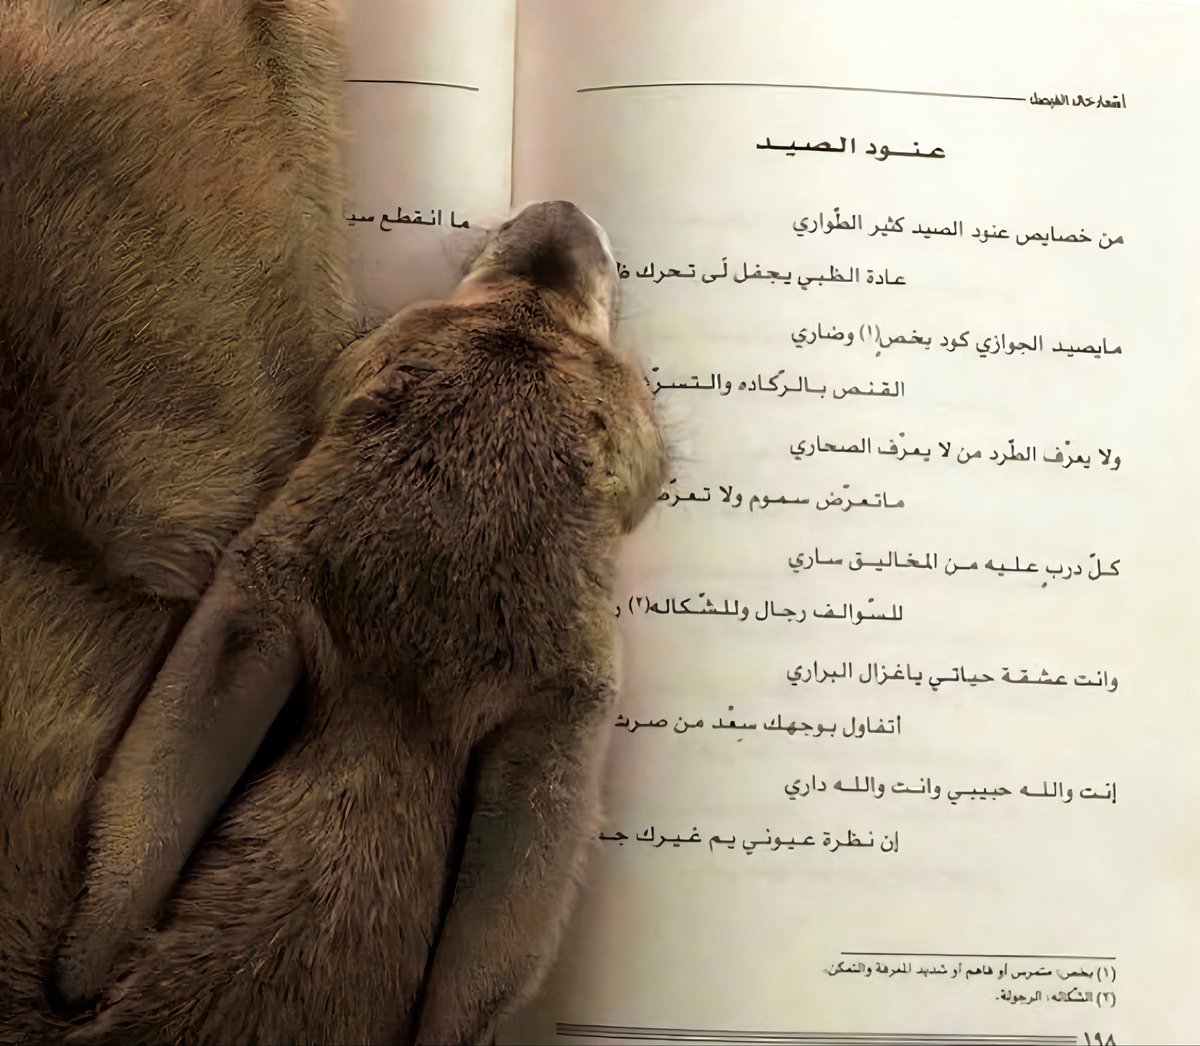 أشعار خالد الفيصل
عنود الصيد
من خصايص عنود الصيد كثير الطّواري
عادة الظبي يجفل لَى تحرك
مايصيد الجوازي كود بخصٍ(١) وضاري
القنص بالرّكاده والتسرّ
ولا يعرْف الطّرد من لا يعرْف الصحاري
ماتعرّض سموم ولا تعرّض
كلّ دربٍ عليه من المخاليق ساري
للسّوالف رجال وللشّكاله(٢)
وانت عشقة حياتي ياغزال البراري
أتفاول بوجهك سِعْد من
إنت والله حبيبي وانت والله داري
إن نظرة عيوني يم غيرك
(١) بخص: متمرس أو فاهم أو شديد المعرفة والتمكن.
(٢) الشّكاله: الرجولة.
١٩٨
ما انقطع